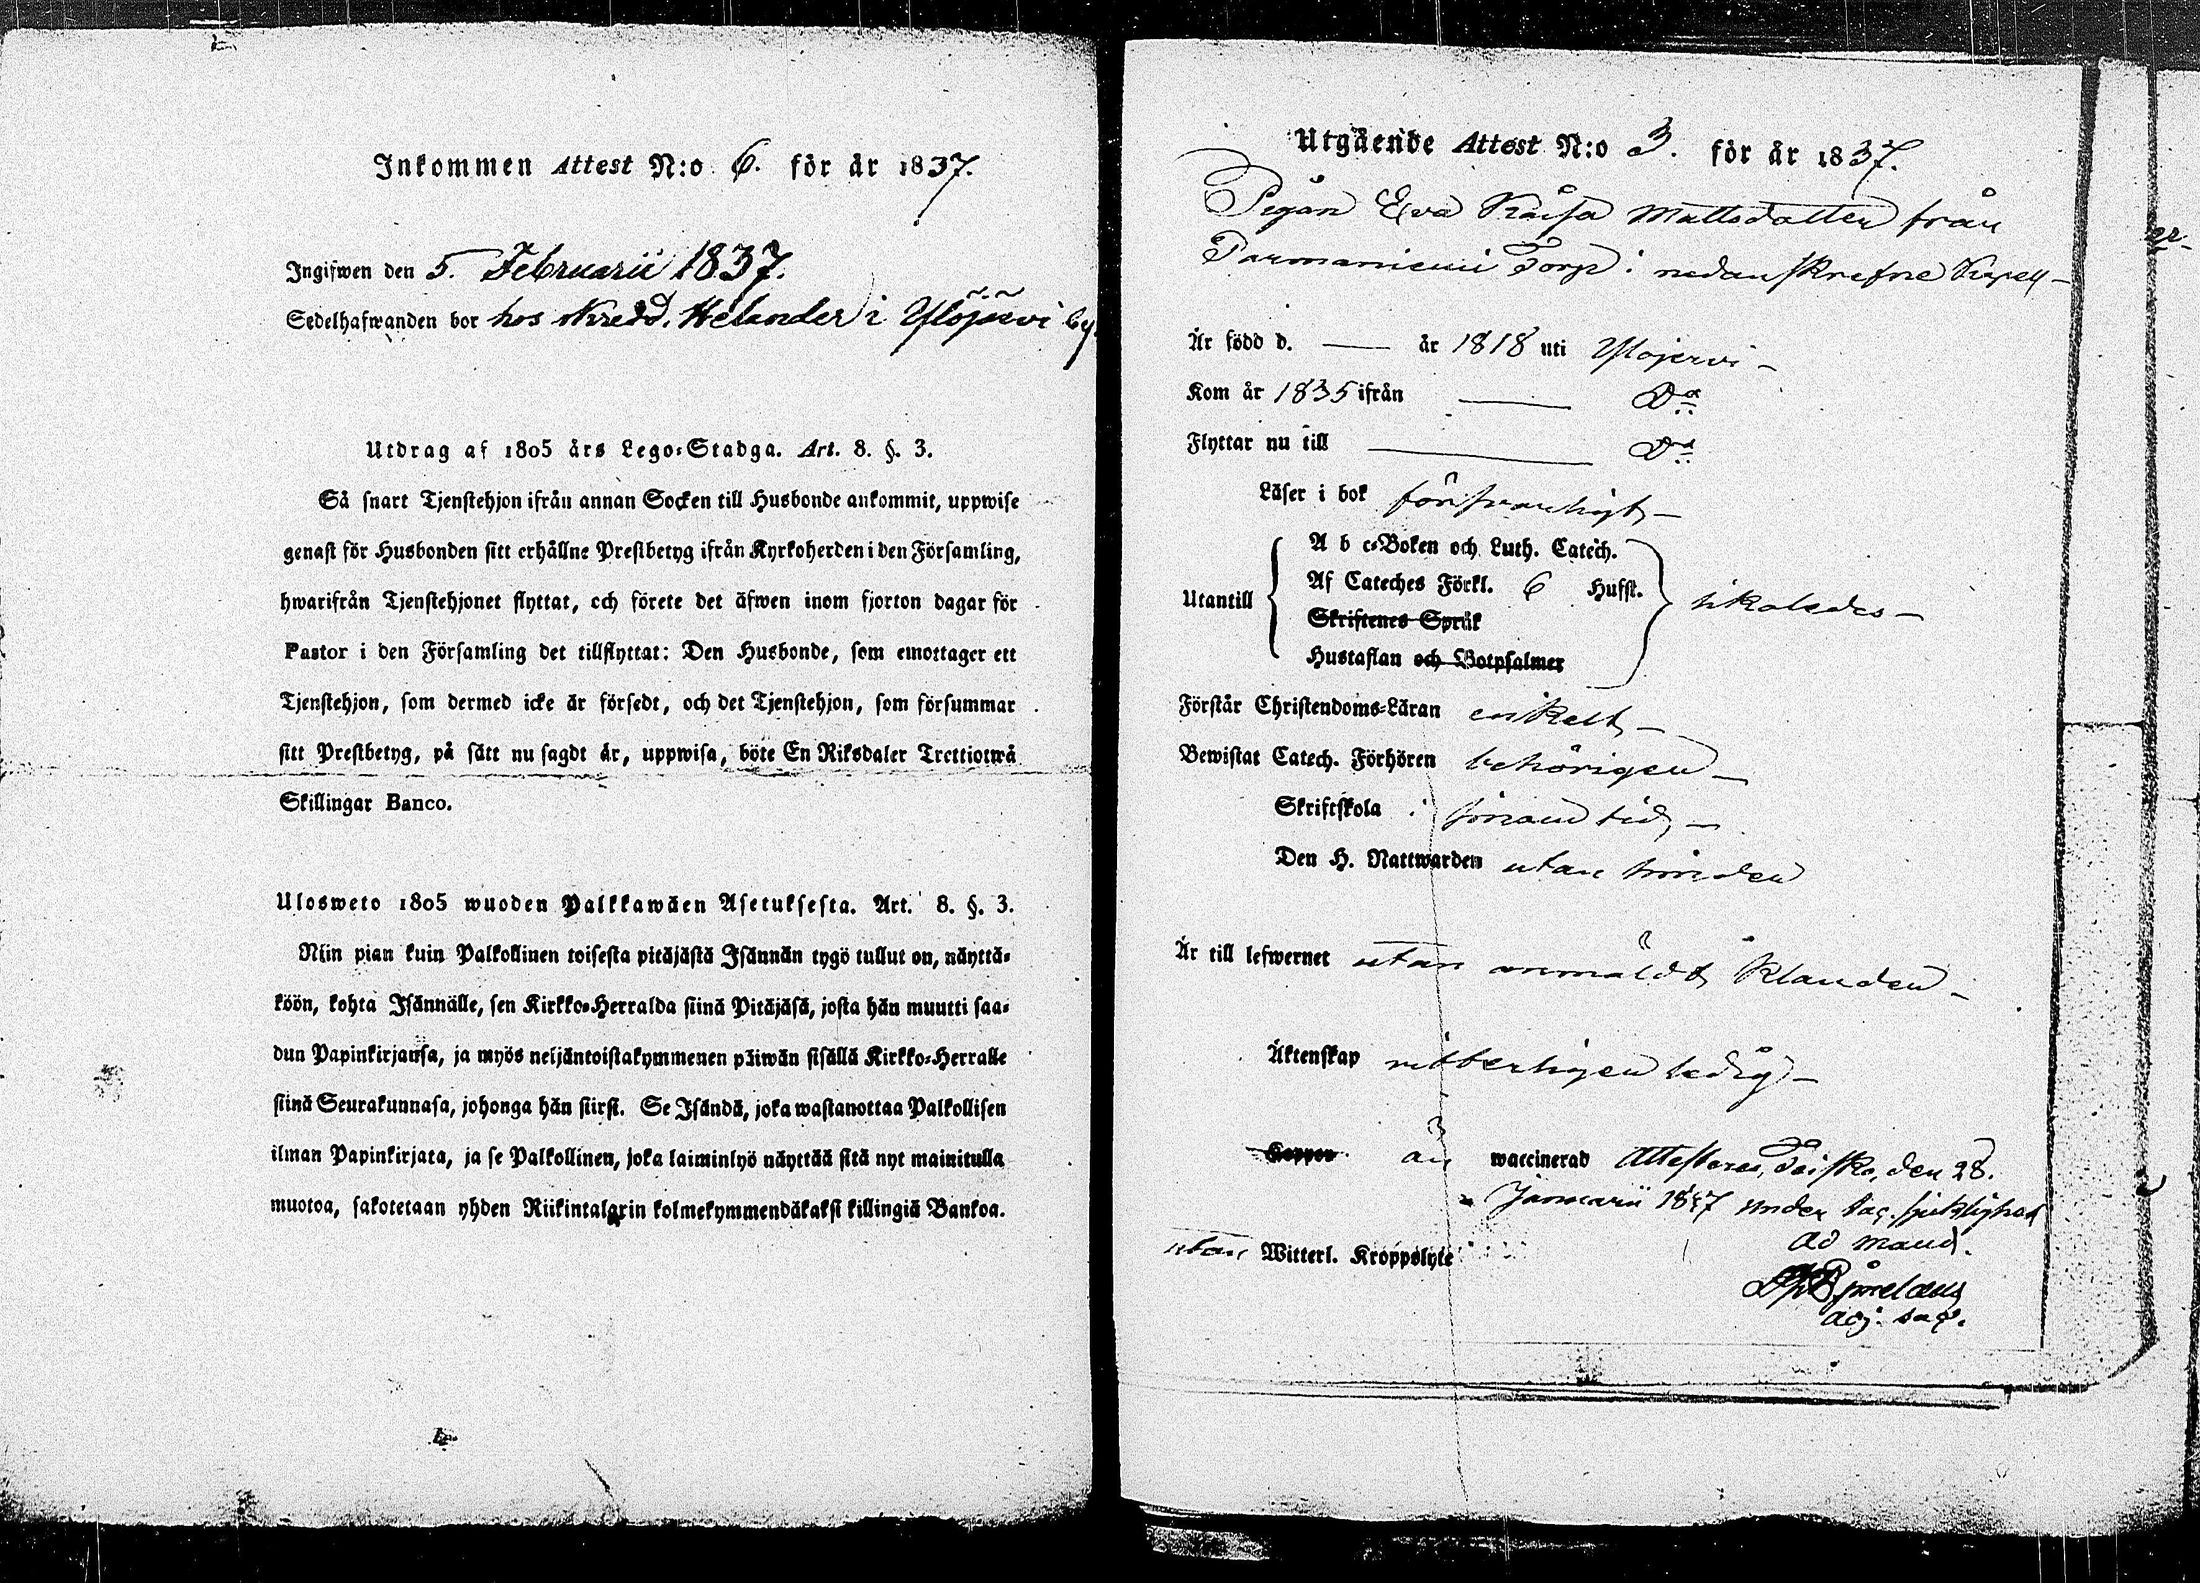 Inkommen Attest N:o 6. för år 1837.
Ingifwen den 5. Februarii 1837.
Sedelhafwanden bor hos skredd. Helander i Ylöjärvi by.
Utdrag af 1805 års Lego-Stadga. Art. 8. §. 3.
Så snart Tjenstehjon ifrån annan Socken till Husbonde ankommit, uppwise
genast för Husbonden sitt erhållne Prestbetyg ifrån Kyrkoherden i den Församling,
hwarifrån Tjenstehjonet flyttat, och förete det äfwen inom fjorton dagar för
Pastor i den Församling det tillflyttat: Den Husbonde, som emottager ett
Tjenstehjon, som dermed icke är försedt, och det Tjenstehjon, som försummar
sitt Prestbetyg, på sätt nu sagdt är, uppwisa, böte En Riksdaler Trettiotwå
Skillingar Banco.
Ulosweto 1805 wuoden Palkkawäen Asetuksesta. Art. 8. §. 3.
Niin pian kuin Palkollinen toisesta pitäjästä Isännän tygö tullut on, näyttä-
köön, kohta Isännälle, sen Kirkko-Herralda siinä Pitäjäsä, josta hän muutti saa-
dun Papinkirjansa, ja myös neljäntoistakymmenen päiwän sisällä Kirkko-Herralle
siinä Seurakunnasa, johonga hän siirsi. Se Isändä, joka wastanottaa Palkollisen
ilman Papinkirjata, ja se Palkollinen, joka laiminlyö näyttää sitä nyt mainitulla
muotoa, sakotetaan yhden Riikintalarin kolmekymmendäkaksi killingiä Bankoa.
Utgående Attest N:o 3. för år 1837.
Pigan Eva Kaisa Mattsdotter från
Parmaniemi Torp i nedanskrefne Kapell
Är född d. — år 1818 uti Ylöjervi
Kom år 1835 ifrån — Do
Flyttar nu till — Do
Läser i bok försvarligt
A b c-Boken och Luth. Catech.
Utantill Af Cateches Förkl. 6 Hufst. likaledes
Skriftenes Språk
Hustaflan och Botpsalmer
Förstår Christendoms-Läran enkelt
Bewistat Catech. Förhören behörigen
Skriftskola i sinom tid
Den H. Nattwarden utan hinder
Är till lefwernet utan anmäldt klander
Äktenskap witterligen ledig
Koppor är waccinerad Attesteras, Teisko, den 28.
Januarii 1837 under Sac. sjuklighet
utan Witterl. Kroppslyte ad mand.
Björkelund
adj. sac.